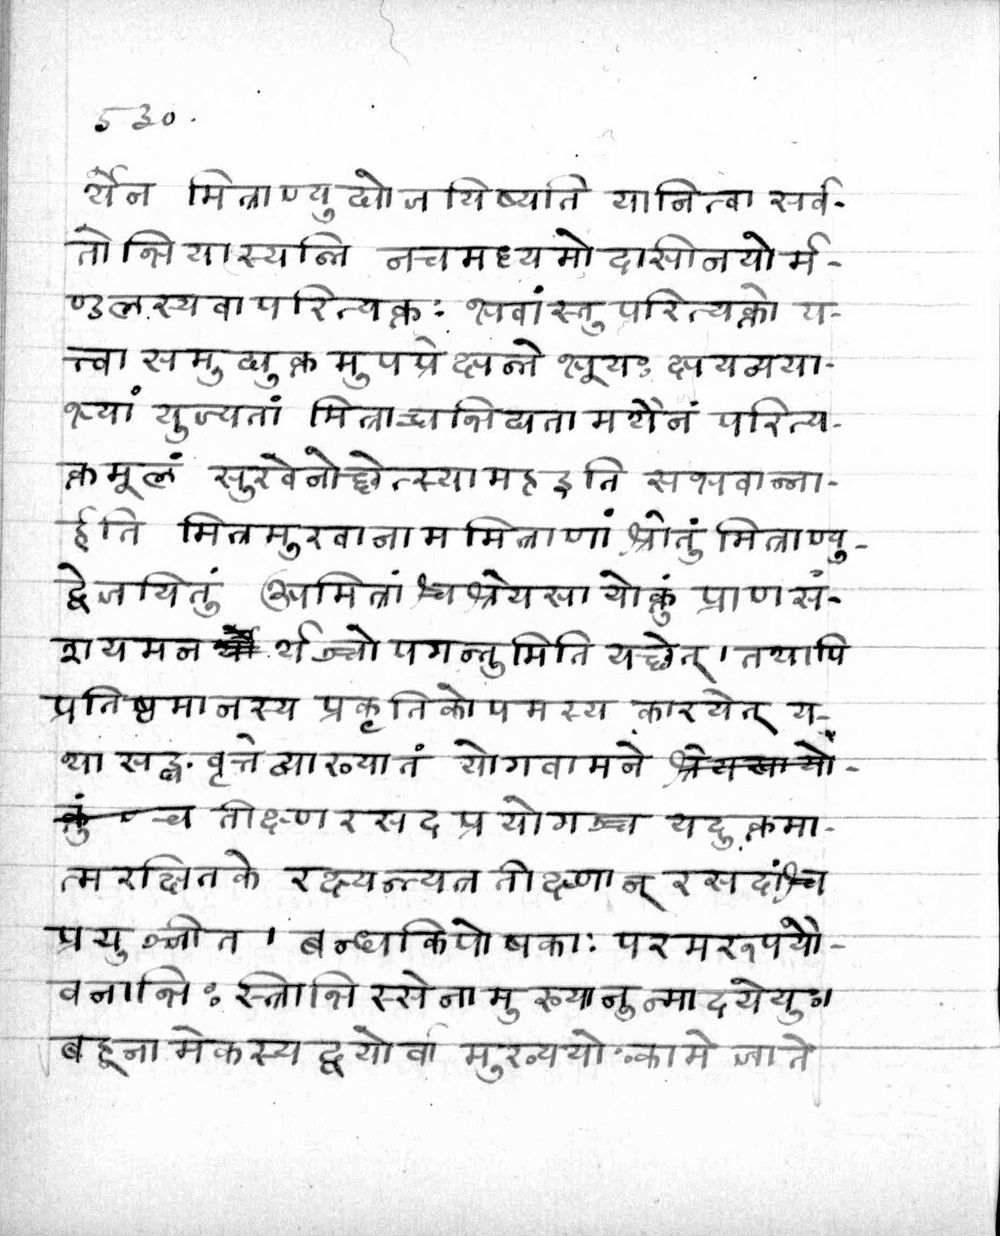 ५३०.
र्थेन मित्राण्युद्योजयिष्यति यानित्वा सर्व-
तोभियास्यन्ति नचमध्यमोदासीनयोर्म-
ण्डलस्यवापरित्यक्तः भवांस्तु परित्यक्तो य-
त्त्वा समुद्युक्तमुपप्रेक्षन्ते भूयः क्षयव्यया-
भ्यां युज्यतां मित्राच्चभिद्यतामथैनं परित्य-
क्तमूलं सुखेनोच्छेत्स्यामह इति सभवान्ना-
र्हति मित्रमुखानाममित्राणां श्रोतुं मित्राण्यु-
द्वेजयितुं अमित्रांश्च श्रेयसा योक्तुं प्राणसं-
शयमनर्थञ्चोपगन्तुमिति यच्छेत् । तथापि
प्रतिष्ठमानस्य प्रकृतिकोपमस्य कारयेत् य-
था सङ्घ वृत्ते व्याख्यातं योगवामने श्रेयसायो-
क्तुं च तीक्ष्णरसदप्रयोगञ्च यदुक्तमा-
त्मरक्षितके रक्ष्यन्त्यत्र तीक्ष्णान् रसदांश्च
प्रयुञ्जीत । बन्धकिपोषकाः परमरूपयौ-
वनाभिः स्त्रीभिस्सेनामुख्यानुन्मादयेयुः।
बहूनामेकस्य द्वयोर्वा मुख्ययोः कामे जाते